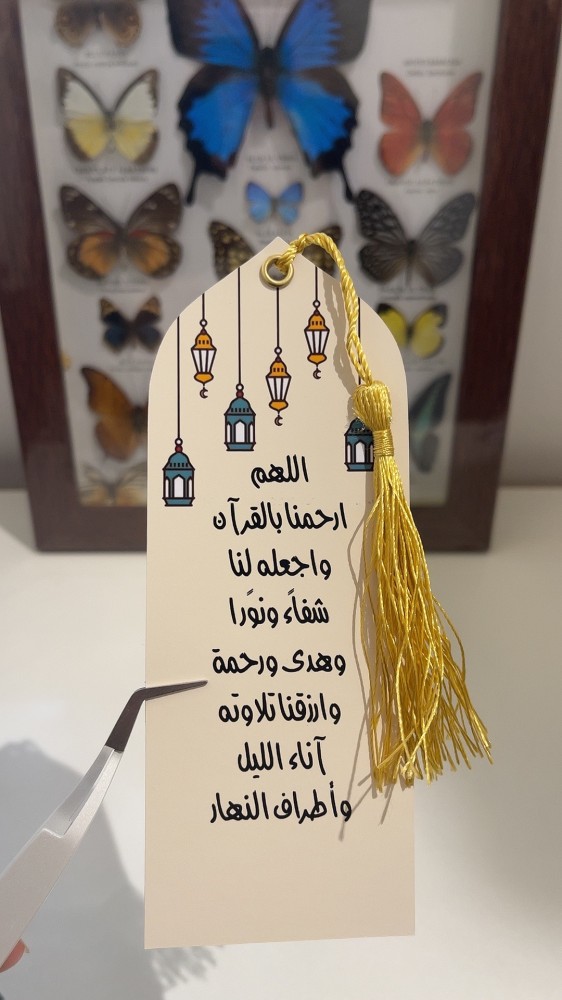 اللهم
ارحمنا بالقرآن
واجعله لنا
شفاًء ونوًرا
وهدى ورحمة
وارزقنا تلاوته
آناء الليل
وأطراف النهار